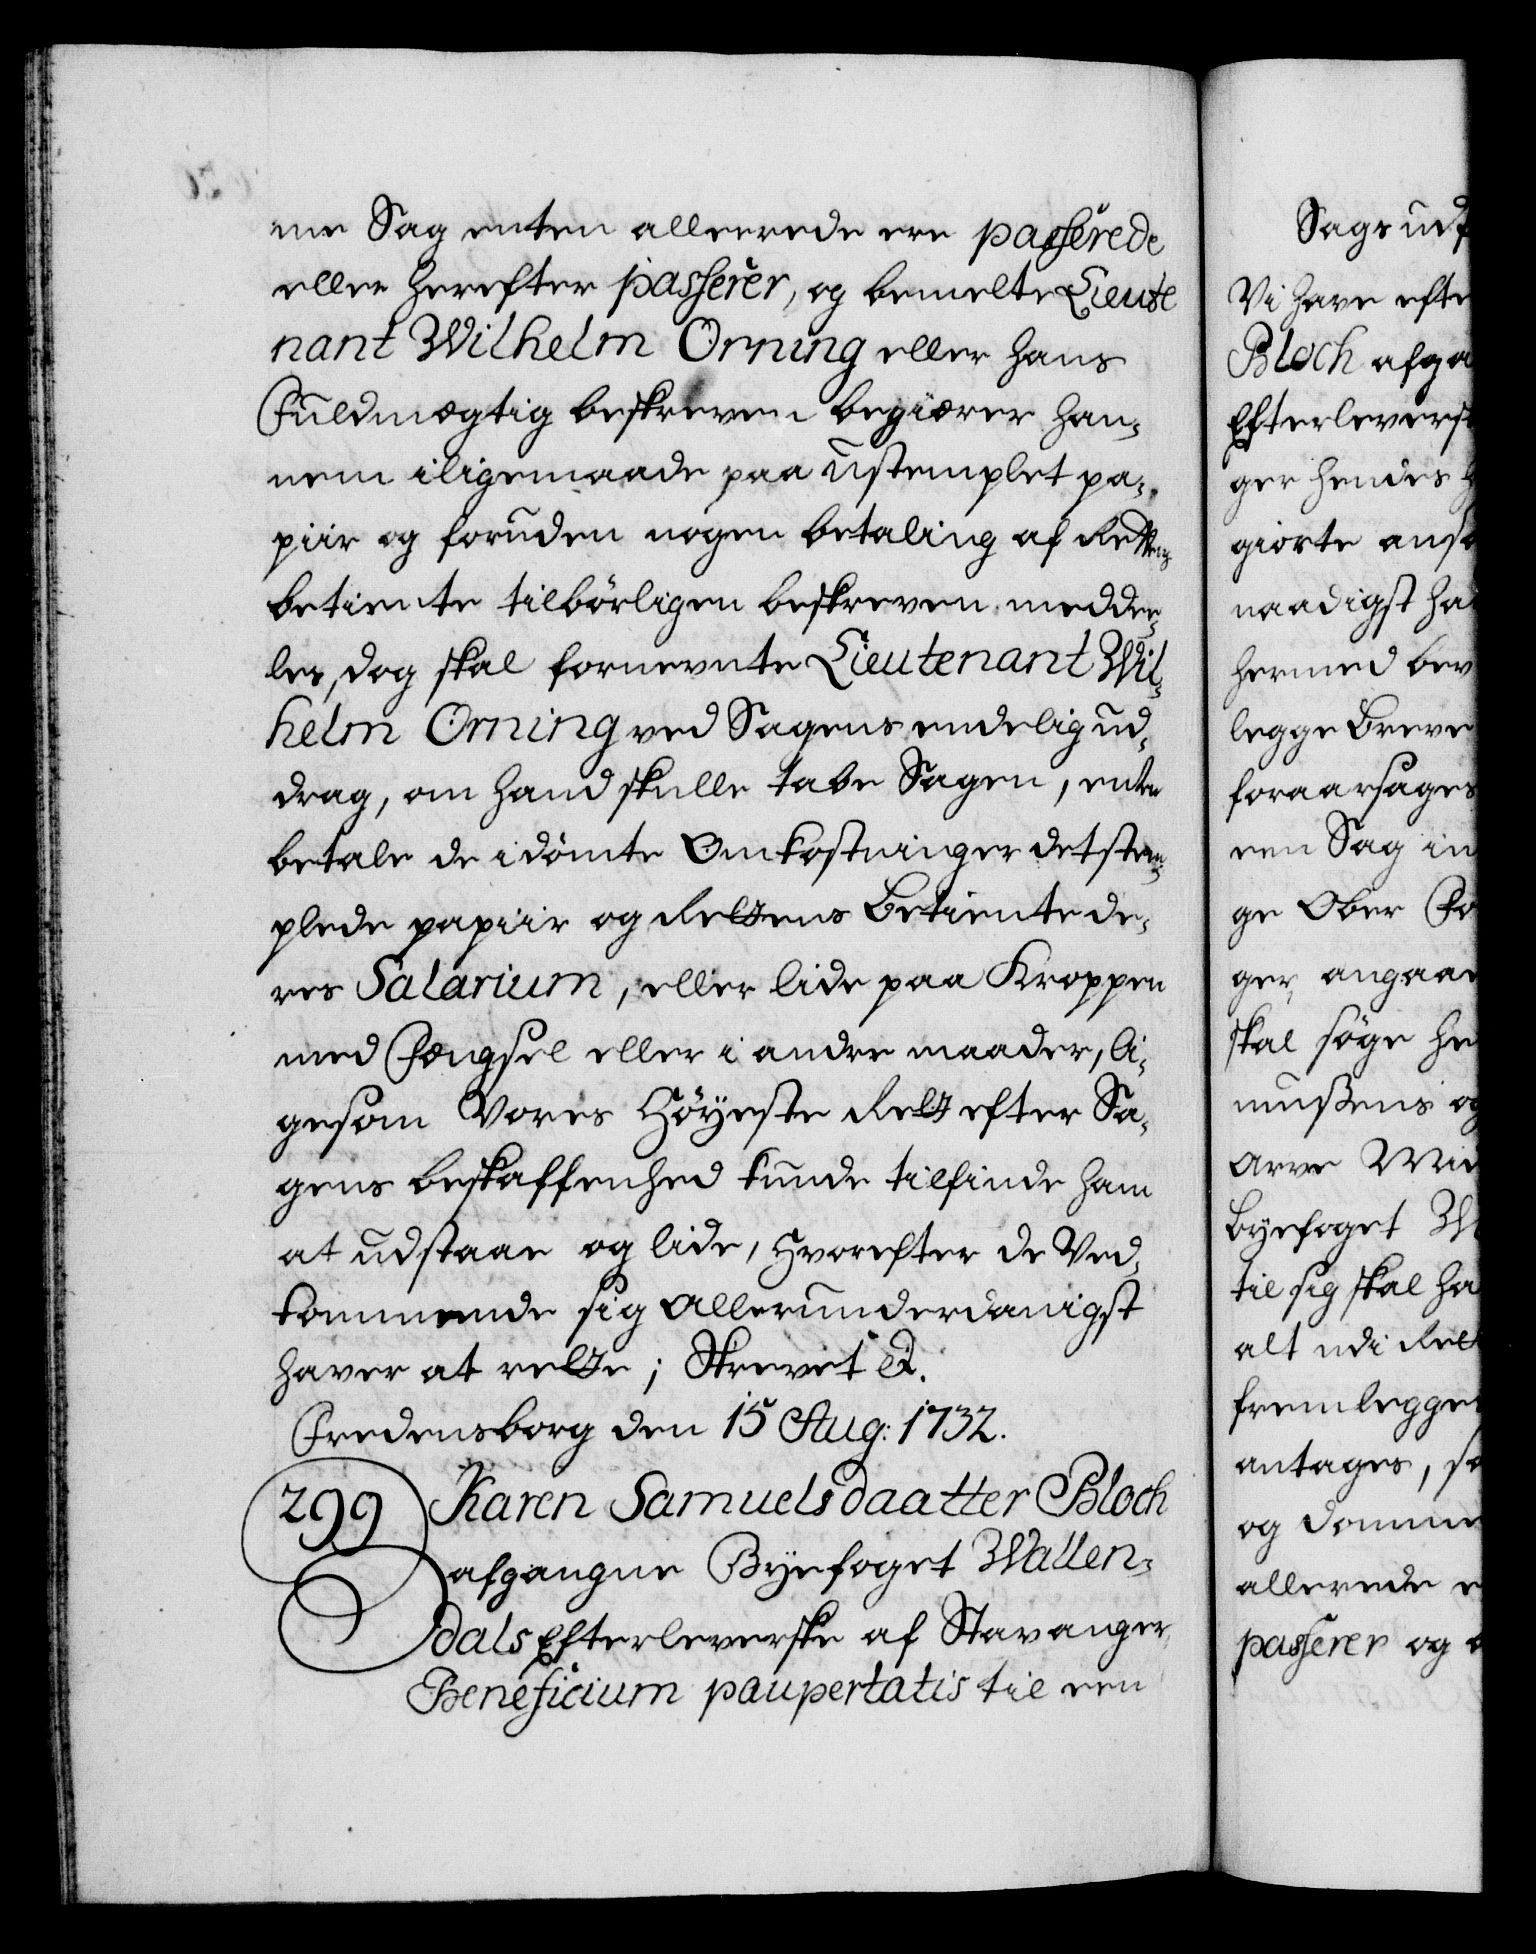 me Sag enten allereede ere passerede
eller herefter passerer, og bemelte Lieute
nant Wilhelm Orning eller hans
Fuldmægtig beskreven begiærer han-
nem iligemaade paa ustemplet pa-
piir og foruden nogen betaling af Rettens
betiente tilbörligen beskreven meddee-
les, dog skal fornevnte Lieutenant Wil-
helm Orning ved Sagens endelig ud-
drag, om hand skulle tabe Sagen, enten
betale de idömte Omkostninger det stem-
plede papiir og Rettens Betiente de-
res Salarium, eller lide paa Kroppen
med Fængsel eller i andre maader, li-
gesom Vores Höyeste Rett efter Sa-
gens beskaffenhed kunde tilfinde ham
at udstaae og lide, Hvorefter de Ved-
kommende sig allerunderdanigst
haver at rette; Skrevet &.
Fredensborg den 15 Aug: 1732.
299 Karen Samuelsdaatter Bloch
afgangne Byefoget Wallen-
dals Efterleverske af Stavanger,
Beneficium paupertatis til een
Sags udf
Vi have efte
Bloch afga
Efterleversk
ger hendes
giorte ans
naadigst ha
hermed bev
legge Breve
foraarsages
een Sag in
ge Ober Fo
ger, angaae
skal söge he
mussens og
Arve
Byefoget W
til sig skal ha
alt udi Ret
fremlegge
antages, s
og domme
allereede e
passerer og